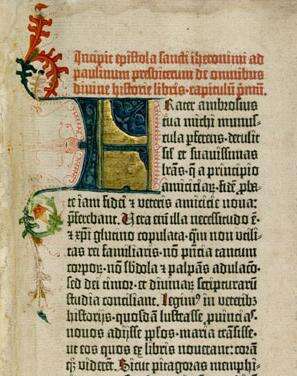 Incipit epistola sancti iheronimi ad
paulinum presbiterum de omnibus
divine historie libris. capitulū pͥmū.
Frater ambrosius
tua michi munus-
cula pferens. detulit
sił et suavissimas
lrās. q̄ a principio
amiciciaꝝ. fidē pba-
te iam fidei ⁊ veteris amicicie noua:
pferebant. Vera em̄ illa necessitudo ē.
⁊ xp̄i glutino copulata. qm̄ non vtili-
tas rei familiaris. nō pn̄cia tantum
corpoꝝ. nō sb̓dola ⁊ palpās adulacō.
sed dei timor. et diuinaꝝ scripturarū
studia conciliant. Legim⁹ in veteribꝫ
historijs. quosdā lustrasse. puīcias.
nouos adijsse pplos. maria trāsisse.
ut eos quos ex libris nouerant: corā
qꝫ viderēt. Sicut pitagoras memphi-